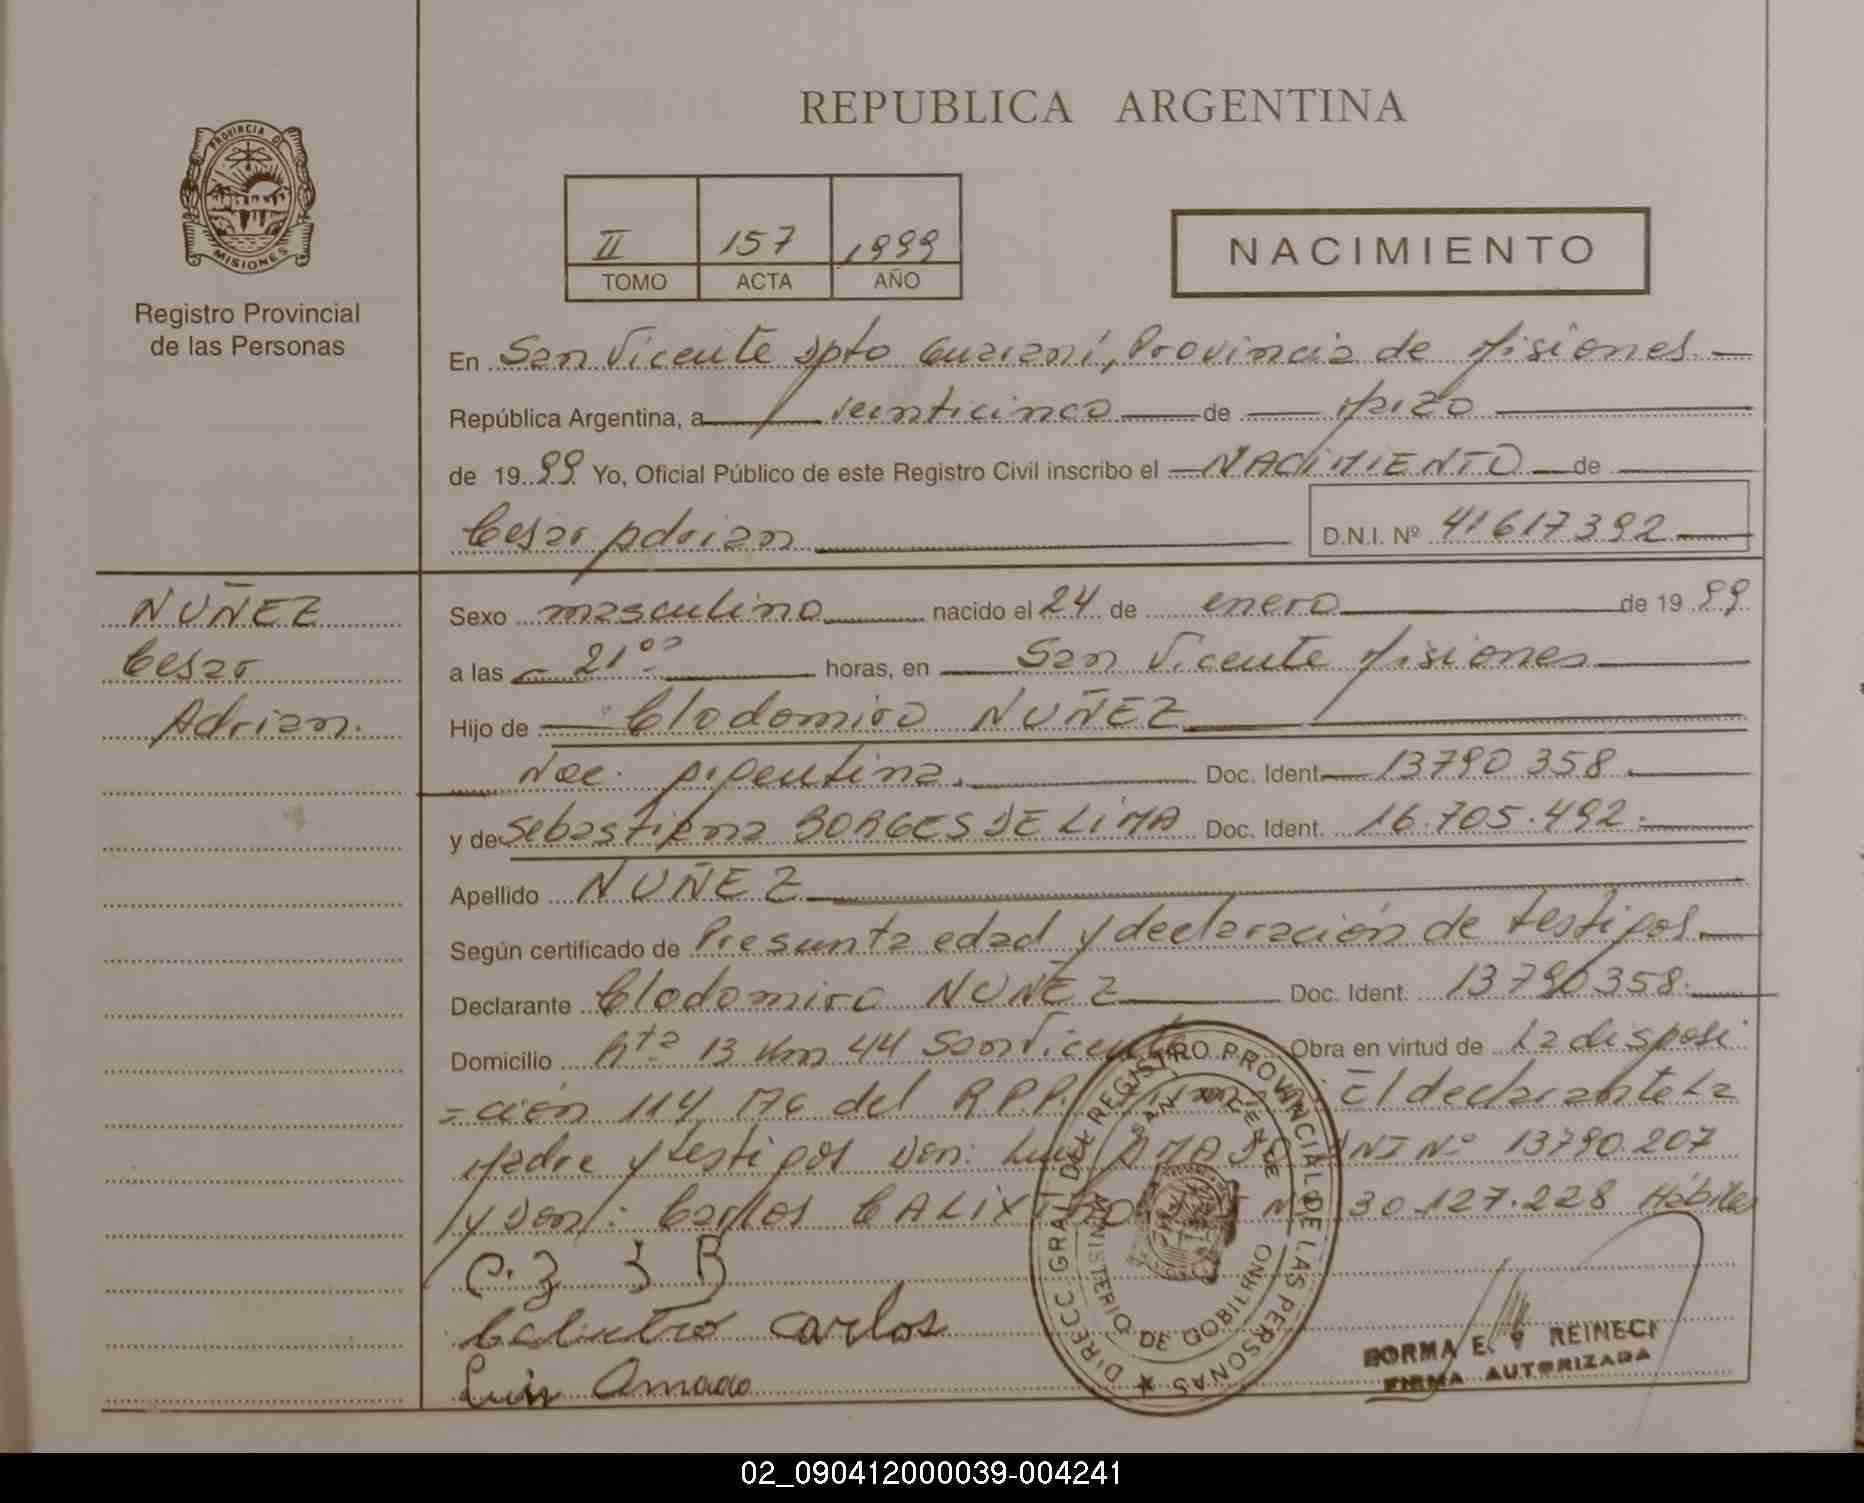 REPUBLICA ARGENTINA
PROVINCIA DE MISIONES
Registro Provincial
de las Personas
II 157 1999
TOMO ACTA AÑO
NACIMIENTO
En San Vicente Dpto Guaraní, Provincia de Misiones
República Argentina, a veinticinco de Marzo
de 1999 Yo, Oficial Público de este Registro Civil inscribo el NACIMIENTO de
Cesar Adrian D.N.I. Nº 41617392
NUÑEZ
Cesar
Adrian.
Sexo masculino nacido el 24 de enero de 1999
a las 21⁰⁰ horas, en San Vicente Misiones
Hijo de Clodomiro NUÑEZ
Nac. Argentina. Doc. Ident. 13790358
y de Sebastiana BORGES DE LIMA Doc. Ident. 16.705.492.
Apellido NUÑEZ
Según certificado de Presunta edad y declaración de testigos.
Declarante Clodomiro NUÑEZ Doc. Ident. 13790358.
Domicilio Rta 13 Km 44 San Vicente Obra en virtud de La disposi
=ción 114/76 del R.P.P. El declarante La
Madre y testigos Don: Luis AMADO DNI Nº 13790.207
y Don: Carlos CALIXTRO Nº 30.127.228 Hábiles
C. B
Calixtro Carlos
Luis Amado
DIRECC GRAL DEL REGISTRO PROVINCIAL DE LAS PERSONAS
SAN VICENTE
MINISTERIO DE GOBIERNO
NORMA E. V REINECI
FIRMA AUTORIZADA
02_090412000039-004241